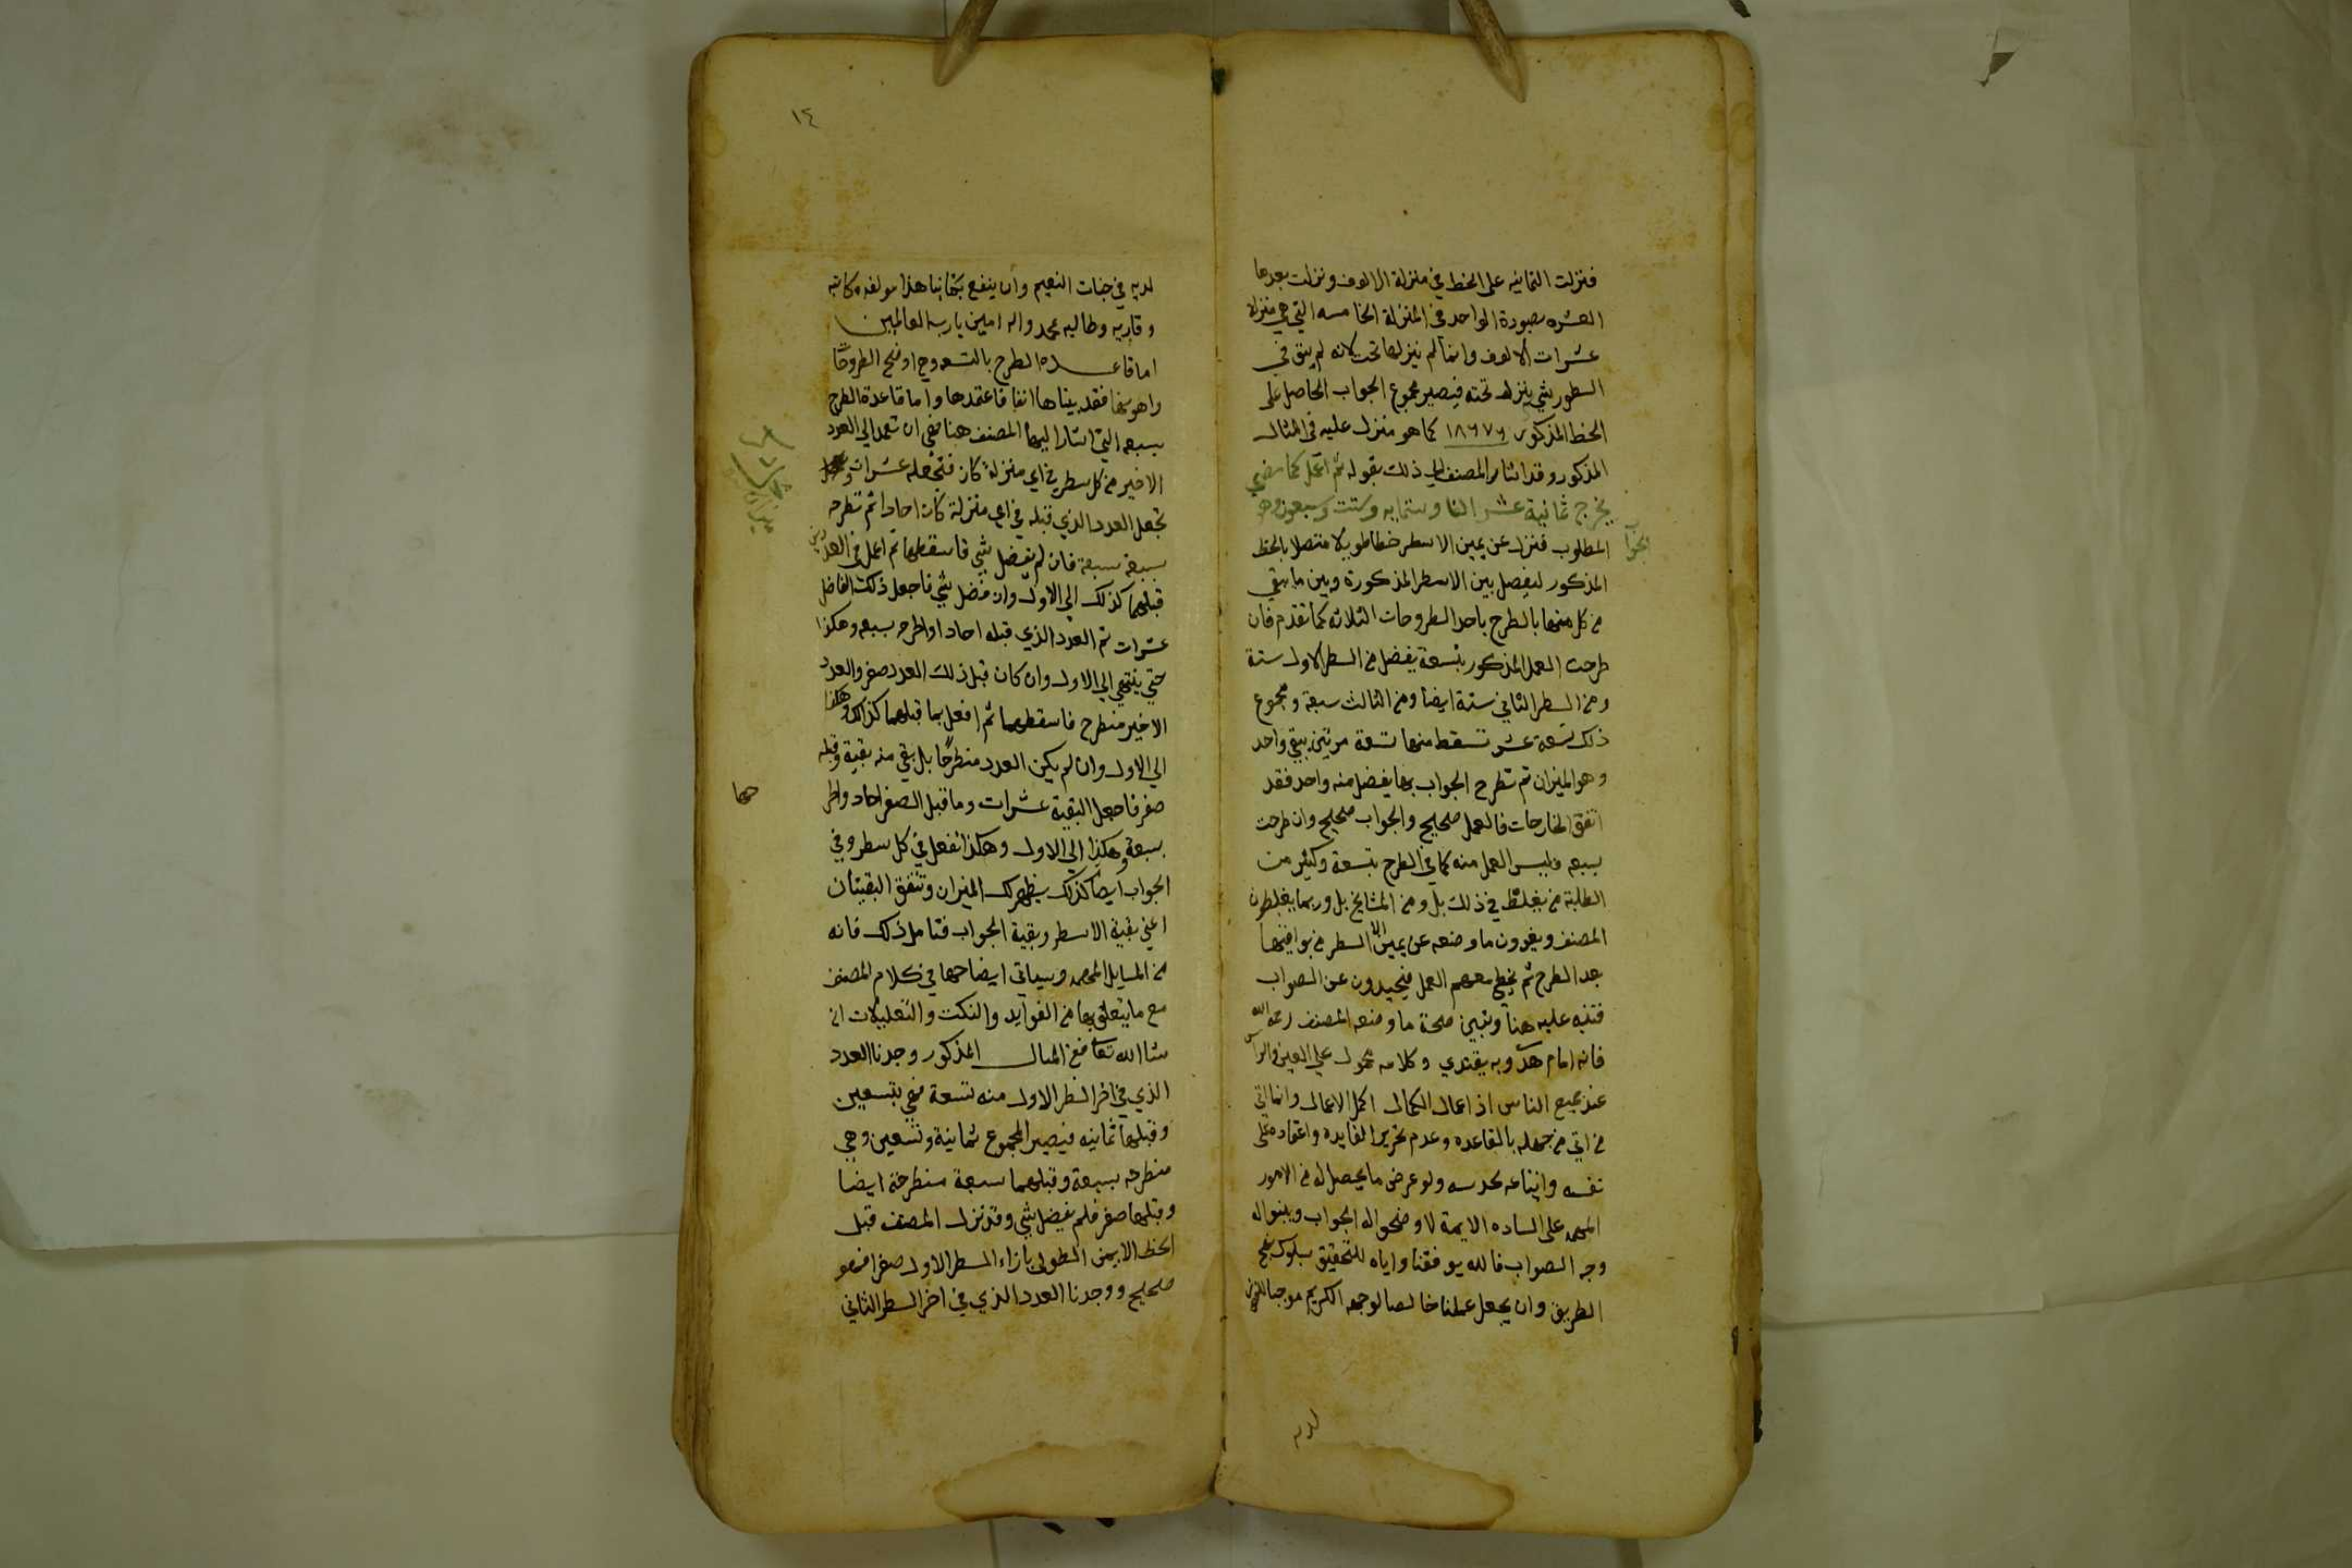 فنزلت الثمانيه على الخط في منزلة الالوف ونزلت بعدها
العشره بصورة الواحد في المنزلة الخامسه التي هي منزلة
عشرات الالوف وانما لم ننزلها تحت لانه لم يبق في
السطور شي ينزله تحته فيصير مجموع الجواب الحاصل على
الخط المذكور ١٨٦٧٦ كما هو منزل عليه في المثال
المذكور وقد اشار المصنف الى ذلك بقوله ثم اعمل كما مضى
يخرج ثمانية عشر الفا وستمايه وستت وسبعون وهو
الجواب
المطلوب فنزل عن يمين الاسطر خطا طويلا متصلا بالخط
المذكور ليفصل بين الاسطر المذكورة وبين ما يبقي
من كل منها بالطرح باحد الطروحات الثلاثه كما تقدم فان
طرحت العمل المذكور بتسعة يفضل من السطر الاول ستة
ومن السطر الثاني ستة ايضا ومن الثالث سبعة ومجموع
ذلك تسعة عشر تسقط منها تسعة مرتين يبقي واحد
وهو الميزان ثم تطرح الجواب بها يفضل منه واحد فقد
اتفق الخارجات فالعمل صحيح والجواب صحيح وان طرحت
بسبعه فليس العمل منه كما في الطرح بتسعة وكثير من
الطلبة من يغلط في ذلك بل ومن المشايخ بل وربما يغلطون
المصنف ويغيرون ما وضعه عن يمين السطر من بواقيها
بعد الطرح ثم يخطي معهم العمل فيحيدون عن الصواب
فتنبه عليه هنا وتبين صحة ما وضعه المصنف رحمه الله
فانه امام هدى وبه يقتدي وكلامه محمول على العين والراس
عند جميع الناس اذ اعمال الكمال اكمل الاعمال وانما اتي
من اتي من جهله بالقاعده وعدم تحرير الفايده واعتماده على
نفسه واتباعه لحدسه ولو عرض ما يحصل له من الامور
المهمه على الساده الايمة لاوضحوا له الجواب وبينوا له
وجه الصواب فالله يوفقنا واياه للتحقيق بسلوك نهج
الطريق وان يجعل عملنا خالصا لوجهه الكريم موجبا للفوز
لديه
١٤
لديه في جنات النعيم وان ينفع بكتابنا هذا مولفه وكاتبه
وقاريه وطالبه بمحمد واله امين يا رب العالمين
اما قاعدة الطرح بالتسعه وهي اوضح الطروحات
واهونها فقد بيناها انفا فاعتمدها واما قاعدة الطرح
بسبعه التي اشار اليها المصنف هنا فهي ان تعمد الى العدد
الاخير من كل سطر في اي منزلة كان فتجعله عشرات
تجعل العدد الذي قبله في اي منزلة كان احادا ثم تطرحه
بسبعة سبعة فان لم يفضل شي فاسقطهما ثم اعمل في العددين
قبلهما كذلك الى الاول وان فضل شي فاجعل ذلك الفاضل
عشرات ثم العدد الذي قبله احادا واطرحه بسبعه وهكذا
حتي ينتهي الى الاول وان كان قبل ذلك العدد صفر والعدد
الاخير منطرح فاسقطهما ثم افعل بما قبلهما كذلك وهكذا
الى الاول وان لم يكن العدد منطرحا بل بقي منه بقية وقبله
صفر فاجعل البقية عشرات وما قبل الصفر احاد واطر
حها
بسبعة وهكذا الى الاول وهكذا تفعل في كل سطر وفي
الجواب ايضا كذلك يظهر لك الميزان وتتفق البقيتان
اعني بقية الاسطر وبقية الجواب فتامل ذلك فانه
من المسايل المهمه وسياتي ايضاحها في كلام المصنف
مع ما يتعلق بها من الفوايد والنكت والتعليلات ان
شا الله تعالى ففي المثال المذكور وجدنا العدد
الذي في اخر السطر الاول منه تسعة فهي بتسعين
وقبلها ثمانيه فيصير المجموع ثمانية وتسعين وهي
منطرحه بسبعة وقبلهما سبعة منطرحة ايضا
وقبلها صفر فلم يفضل شي وقد نزل المصنف قبل
الخط الايمن الطولي بازاء السطر الاول صفرا فهو
صحيح ووجدنا العدد الذي في اخر السطر الثاني